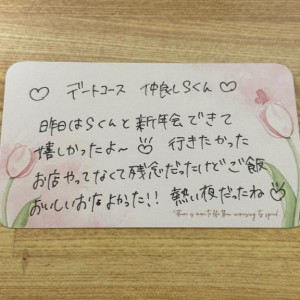 ♡ デートコース 仲良しらくん ♡
昨日はらくんと新年会できて
嬉しかったよ〜 行きたかった
お店やってなくて残念だったけどご飯
おいしいお店よかった!! 熱い夜だったね
There is more to life than increasing its speed